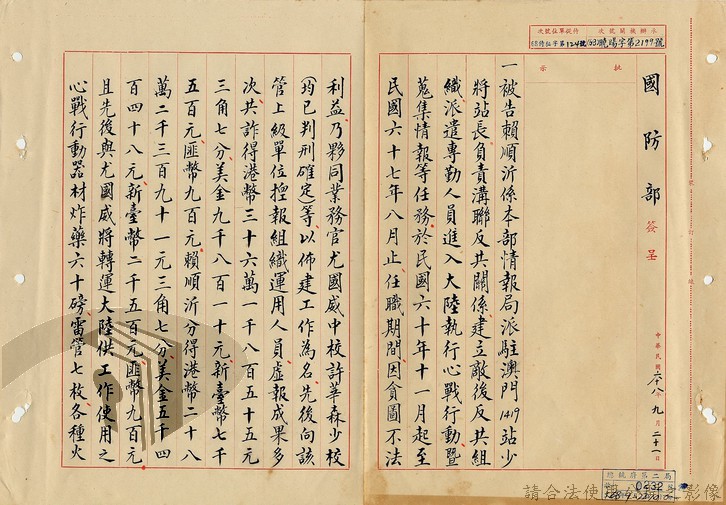 國防部簽呈
中華民國六十八年九月二十一日
批示
一被告賴順沂係本部情報局派駐澳門1419站少
將站長負責溝聯反共關係建立敵後反共組
織派遣專勤人員進入大陸執行心戰行動暨
蒐集情報等任務於民國六十年十一月起至
民國六十七年八月止任職期間因貪圖不法
利益乃夥同業務官尤國威中校許華森少校
(均已判刑確定)等以佈建工作為名先後向該
管上級單位捏報組織運用人員虛報成果多
次共詐得港幣三十六萬一千八百五十五元
三角七分美金九千八百一十元新臺幣七千
五百元匪幣九百元賴順沂分得港幣二十八
萬二千三百九十一元三角七分美金五千四
百四十八元新臺幣二千五百元匪幣九百元
且先後與尤國威將轉運大陸供工作使用之
心戰行動器材炸藥六十磅雷管七枚各種火
總統府第二局
0232
請合法使用
影像